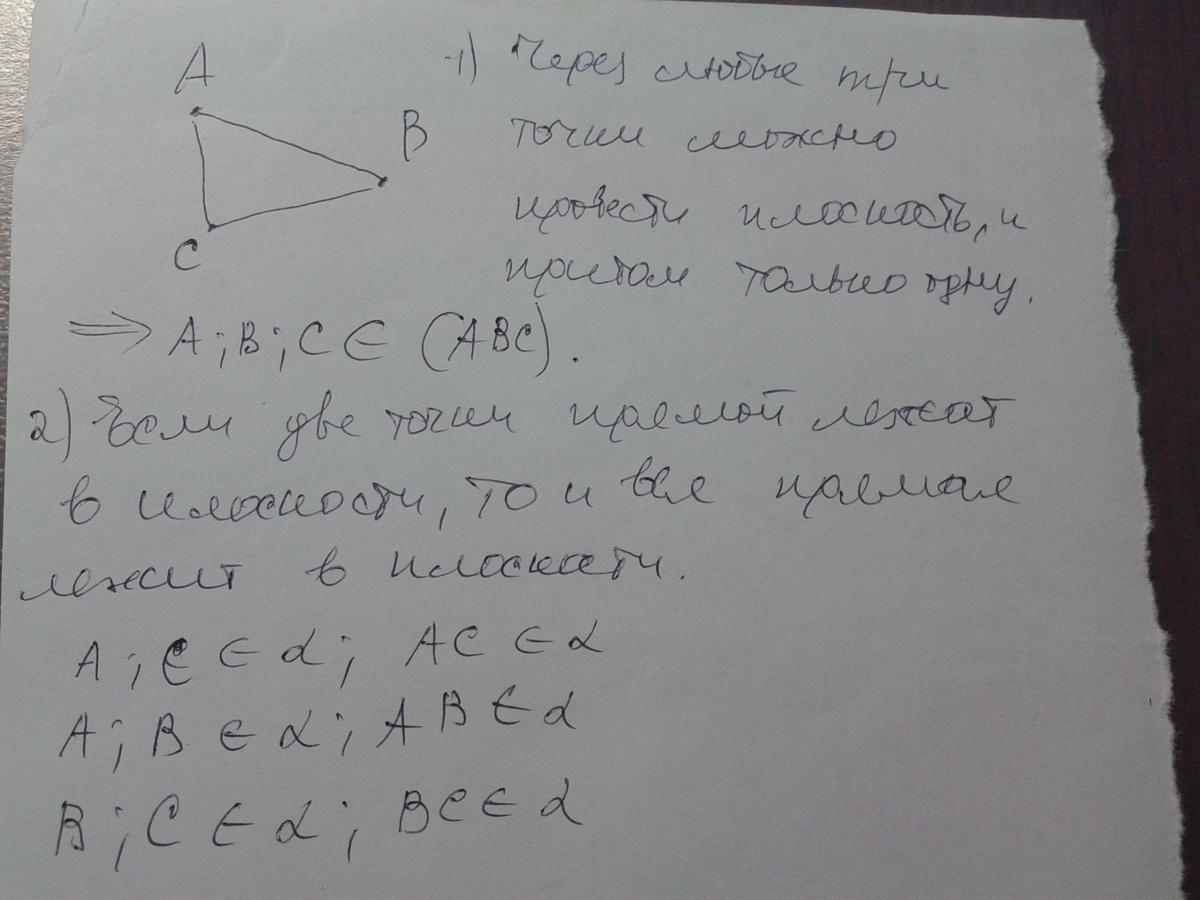 A
B
C
1) Через любые три
точки можно
провести плоскость, и
притом только одну.
⇒ A; B; C ∈ (ABC).
2) Если две точки прямой лежат
в плоскости, то и вся прямая
лежит в плоскости.
A; C ∈ α; AC ∈ α
A; B ∈ α; AB ∈ α
B; C ∈ α; BC ∈ α